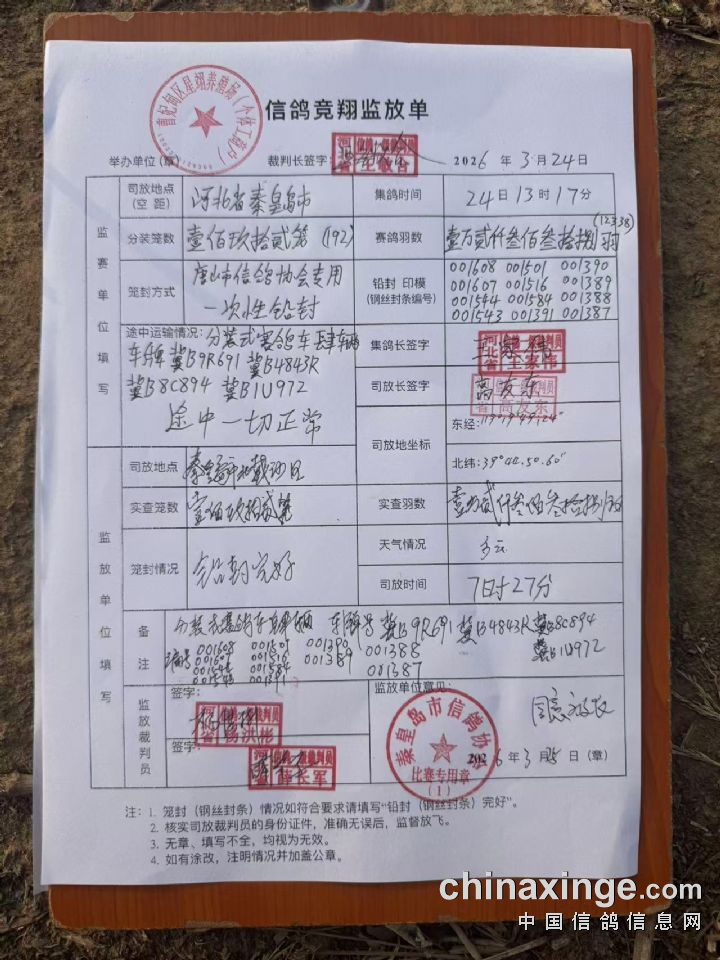 信鸽竞翔监放单
曹妃甸区星翊养殖场（个体工商户）
举办单位（章） 裁判长签字： 2026 年 3 月 24 日
监赛单位填写
司放地点（空 距） 河北省秦皇岛市 集鸽时间 24日13时17分
分装笼数 壹佰玖拾贰笼 (192) 赛鸽羽数 壹万贰仟叁佰叁拾捌羽 (12338)
笼封方式 唐山市信鸽协会专用一次性铅封 铅封 印模（钢丝封条编号）
001608 001501 001390
001607 001516 001389
001544 001584 001388
001543 001391 001387
途中运输情况：分装式赛鸽车肆车辆
车牌 冀B9R691 冀B4843R
冀B8C894 冀B1U972
途中一切正常
集鸽长签字 王家伟
司放长签字 高友东
司放地坐标 东经：
北纬：39°44.50.60"
监放单位填写
司放地点 秦皇岛市北戴河区
实查笼数 壹佰玖拾贰笼 实查羽数 壹万贰仟叁佰叁拾捌羽
笼封情况 铅封完好 天气情况 多云
司放时间 7时27分
备注 分装式赛鸽车肆车辆 车牌号 冀B9R691 冀B4843R 冀B8C894
冀B1U972
编号 001608 001501 001390 001388
001607 001516 001389
001544 001584 001387
001543 001391
监放裁判员
签字： 杨洪彬
签字： 薛长军
监放单位意见：
同意放飞
秦皇岛市信鸽协会
比赛专用章
（1）
2026 年 3 月 25 日（章）
注：1. 笼封（钢丝封条）情况如符合要求请填写“铅封（钢丝封条）完好”。
2. 核实司放裁判员的身份证件，准确无误后，监督放飞。
3. 无章、填写不全，均视为无效。
4. 如有涂改，注明情况并加盖公章。
chinaxinge.com
中国信鸽信息网